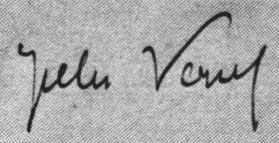 Jules Verne